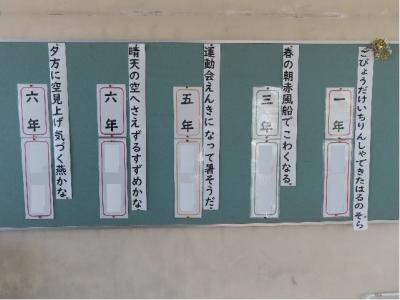 ごびょうだけいちりんしゃできたはるのそら
一年
春の朝赤風船でこわくなる。
三年
運動会えんきになって暑そうだ。
五年
晴天の空へさえずるすずめかな
六年
夕方に空見上げ気づく燕かな。
六年